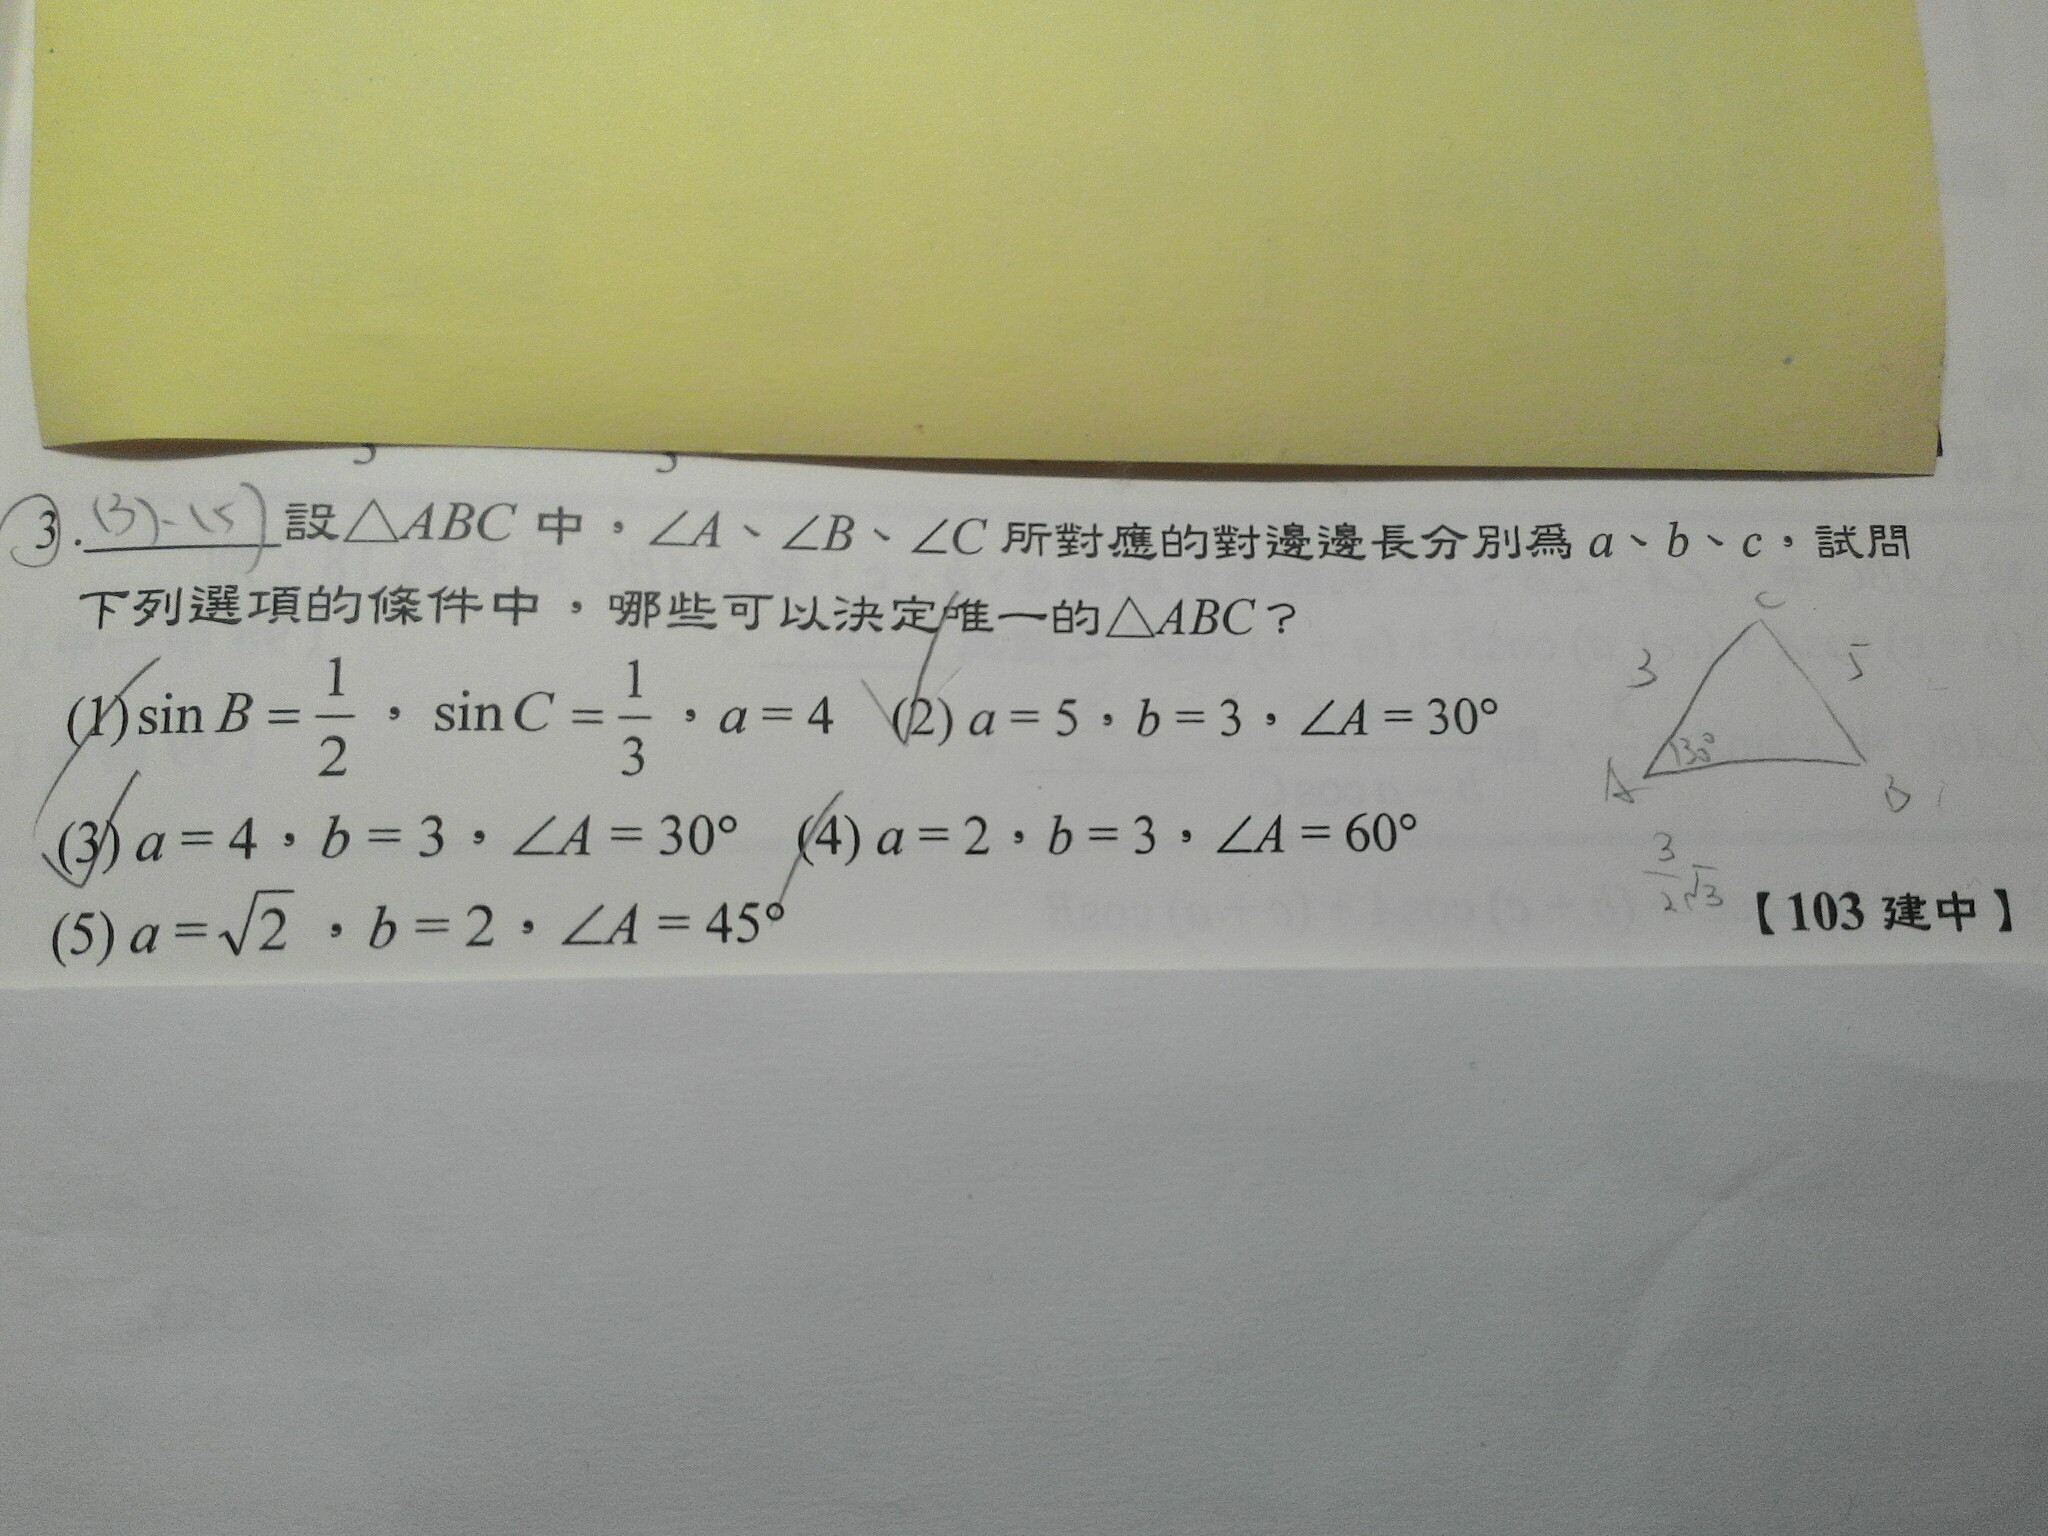 3. (3)-(5) 設△ABC 中，∠A、∠B、∠C 所對應的對邊邊長分別為 a、b、c，試問
下列選項的條件中，哪些可以決定唯一的△ABC？
(1) sin B = 1/2 ， sin C = 1/3 ，a = 4 (2) a = 5，b = 3，∠A = 30°
(3) a = 4，b = 3，∠A = 30° (4) a = 2，b = 3，∠A = 60°
(5) a = √2 ，b = 2，∠A = 45°
【103 建中】
C
3 5
30°
A B
3/2 √3